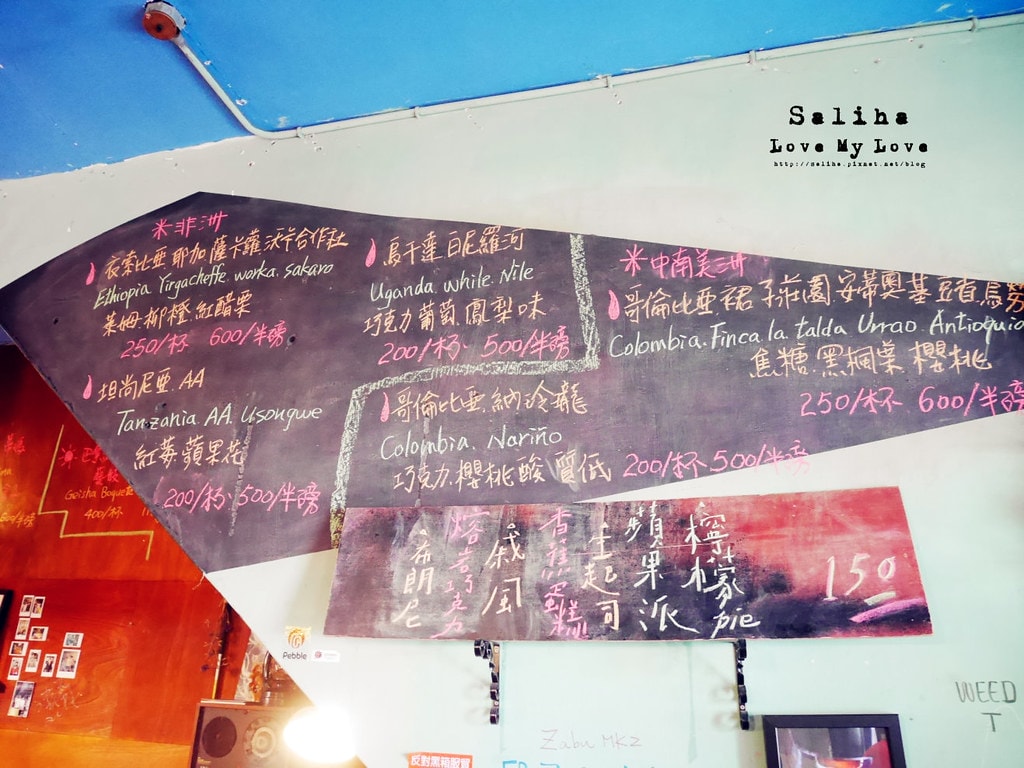 Saliha
Love My Love
http://saliha.pixnet.net/blog
米非洲
衣索比亞耶加薩卡蘿沃卡合作社
Ethiopia Yirgacheffe. worka. Sakaro
萊姆.柳橙.紅醋栗
250/杯 600/半磅
坦尚尼亞.AA
Tanzania AA. Usongwe
紅莓蘋果花
200/杯、500/半磅
烏干達白尼羅河
Uganda. White. Nile
巧克力葡萄.鳳梨味
200/杯、500/半磅
哥倫比亞.納冷瓏
Colombia. Nariño
巧克力.櫻桃酸質低 200/杯 500/半磅
米中南美洲
哥倫比亞.裙子莊園.安蒂奧基亞省.烏勞
Colombia.Finca la falda Urrao. Antioquia
焦糖.黑桐葉櫻桃
250/杯 600/半磅
希朗尼
熔岩巧克力
戚風
香蕉蛋糕
生起司
蘋果派
檸檬Pie
150
Geisha
400/杯
Pebble
WEED
T
Zabu MKZ
反對黑箱服貿